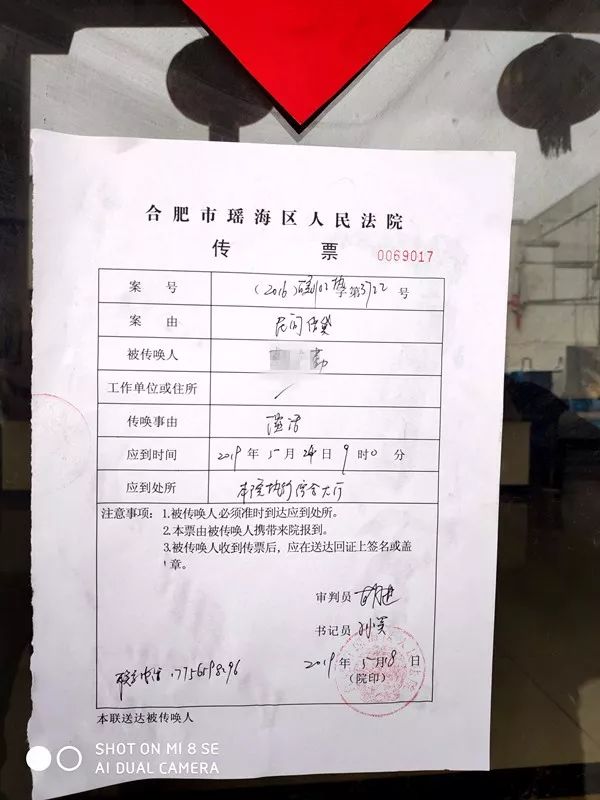 合肥市瑶海区人民法院
传 票
0069017
案 号 (2016)皖0102执字第3722号
案 由 民间借贷
被传唤人 勤
工作单位或住所 /
传唤事由 谈话
应到时间 2019年5月24日9时0分
应到处所 本院执行综合大厅
注意事项:1.被传唤人必须准时到达应到处所。
2.本票由被传唤人携带来院报到。
3.被传唤人收到传票后,应在送达回证上签名或盖
章。
审判员
书记员
2019年5月8日
(院印)
本联送达被传唤人
SHOT ON MI 8 SE
AI DUAL CAMERA